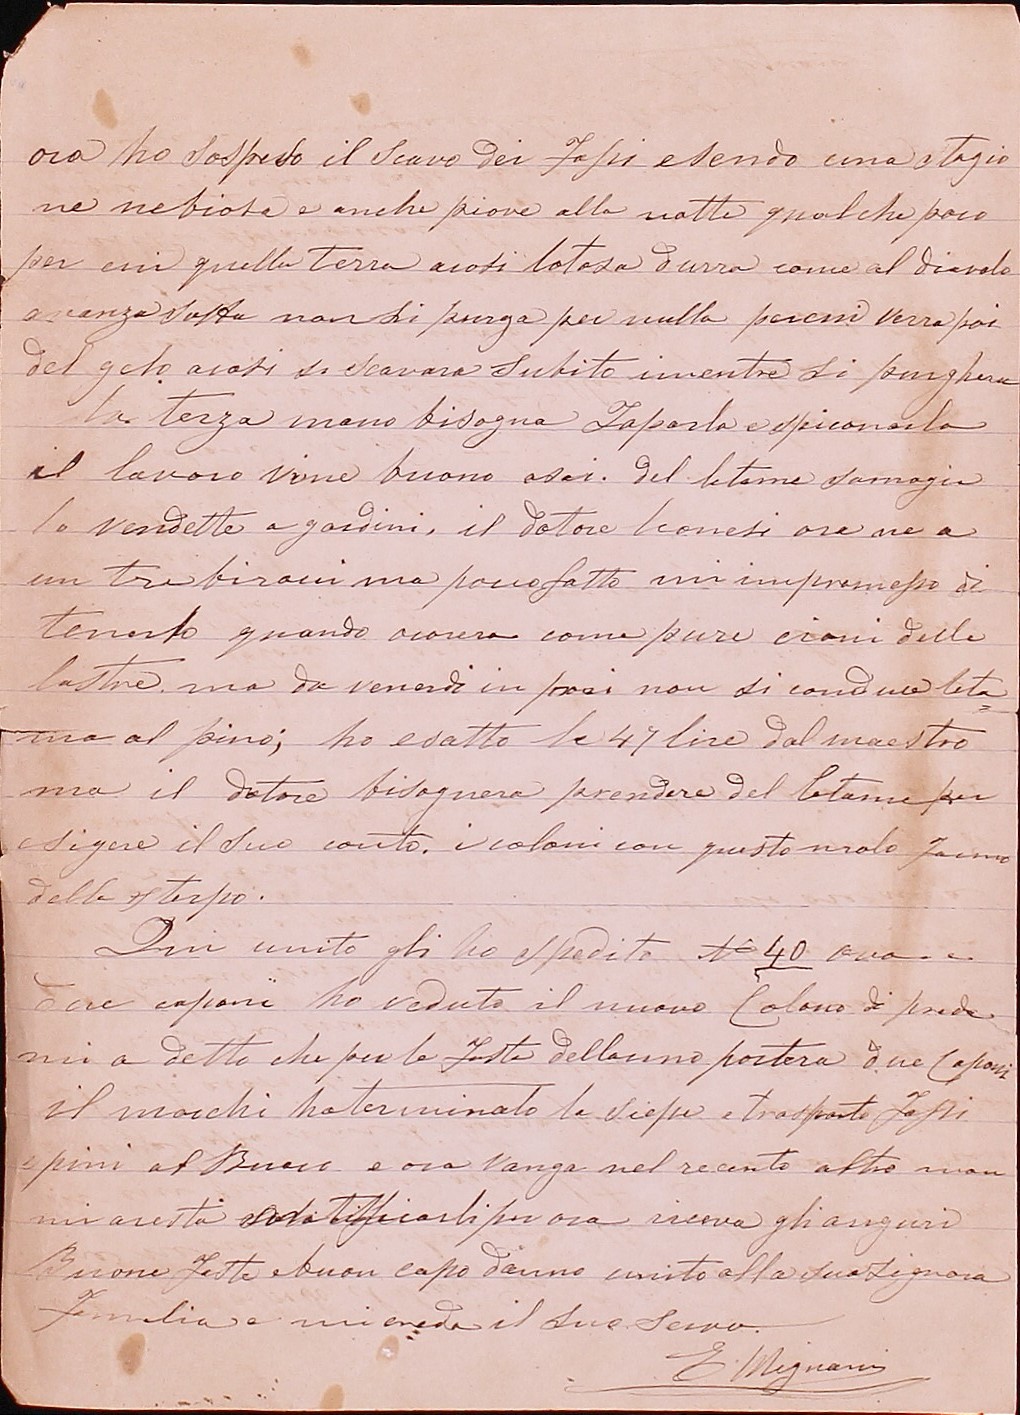 ora ho sospeso il scavo dei Fossi esendo una stagio
ne nebiosa e anche piove alla notte qualche poco
per cui quella terra acosi lotosa durra come al diavolo
avanza sotta non si purga per nulla percui verra poi
del gelo acosi si scavara subito imentre si purghera
la terza mano bisogna Zaparla e spiconarla
il lavoro vine buono asai. del letame somagia
lo vendette a gardini, il dotore Leonesi ora ne a
un tre biroci ma poco fatto mi impromesso di
tenerlo quando ocorera come pure crani delle
lastre. ma da venerdi in poi non si conduce leta
=
ma al pino; ho esatto le 47 lire dal maestro
ma il dotore bisognera prendere del letame per
esigere il suo conto. i coloni con questo molo fanno
delle sterpo.
Qui unito gli ho spedito N° 40 ova e
due caponi ho veduto il nuovo Colono di preda
mi a detto che per le feste dellanno portera due Caponi
il mochi ha terminato la siepe e trasporto Fossi
e pini al Buco e ora vanga nel recinto altro non
mi aresta notificarli per ora riceva gli anguri
Buone feste e buon capo danno unito alla sua Signora
Familia e mi creda il suo servo.
E. Mignani